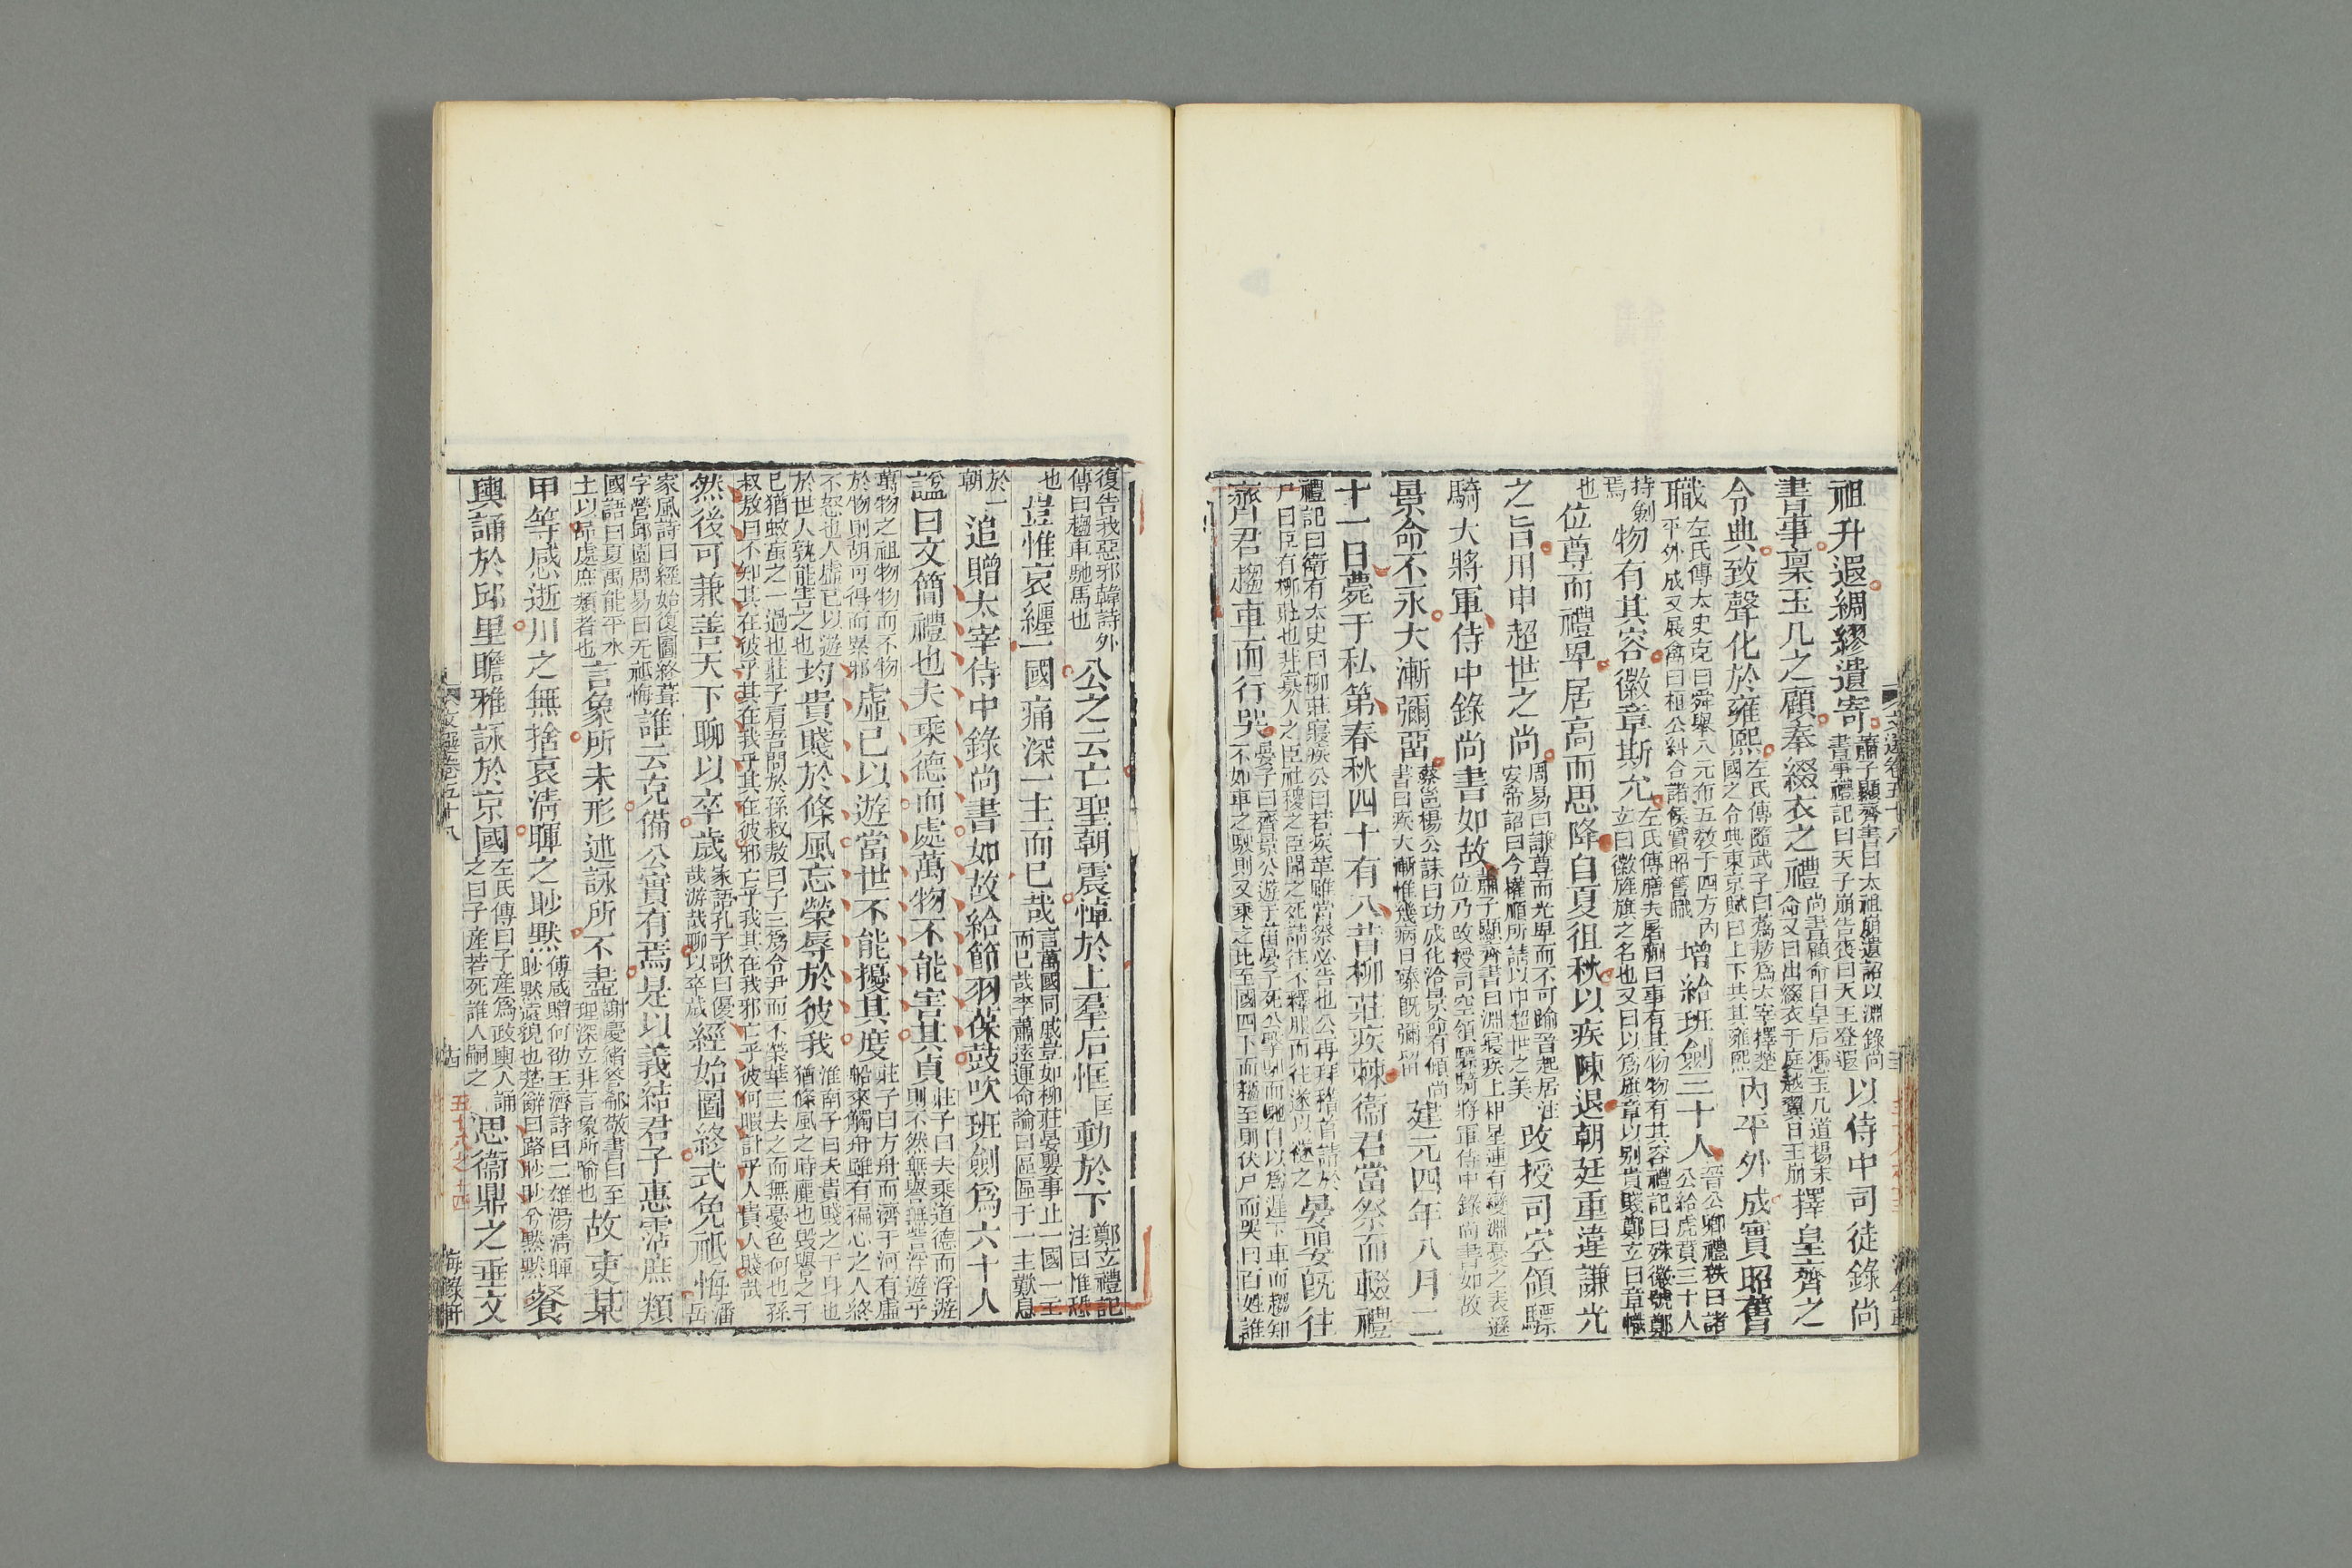 祖升遐綢繆遺寄蕭子顯齊書曰太祖崩遺詔以淵錄尚書事禮記曰天子崩告喪曰天王登遐以侍中司徒錄尚
書事稟玉几之顧奉綴衣之禮尚書顧命曰皇后憑玉几道揚末命又曰出綴衣于庭越翼日王崩擇皇齊之
令典致聲化於雍熙左氏傳隨武子曰蒍敖爲太宰擇楚國之令典東京賦曰上下共其雍熙内平外成實昭舊
職左氏傳太史克曰舜舉八元布五教于四方内平外成又展禽曰桓公糾合諸侯實昭舊職增給班劍三十人晉公卿禮秩曰諸公給虎賁三十人
持劍焉物有其容徽章斯允左氏傳膳夫屠蒯曰事有其物物有其容禮記曰殊徽號鄭立曰徽旌旗之名也又曰以爲旗章以别貴賤鄭立曰章幟
也位尊而禮卑居高而思降自夏徂秋以疾陳退朝廷重違謙光
之旨用申超世之尚周易曰謙尊而光卑而不可踰晉起居注安帝詔曰今權順所請以申超世之美改授司空領驃
騎大將軍侍中錄尚書如故蕭子顯齊書曰淵寢疾上相星連有變淵憂之表遜位乃改授司空領驃騎將軍侍中錄尚書如故
景命不永大漸彌留蔡邕楊公誄曰功成化洽景命有傾尚書曰疾大漸惟幾病日臻旣彌留建元四年八月二
十一日薨于私第春秋四十有八昔柳莊疾棘衞君當祭而輟禮
禮記曰衛有太史曰柳莊寢疾公曰若疾革雖當祭必告也公再拜稽首請於尸曰臣有柳莊也非寡人之臣社稷之臣聞之死請往不釋服而往遂以襚之晏嬰旣往
齊君趨車而行哭晏子曰齊景公遊于菑晏子死公擊馹而馳自以爲遲下車而趨知不如車之駛則又乘之比至國四下而趨至則伏尸而哭曰百姓誰
復告我惡邪韓詩外傳曰趨車馳馬也公之云亡聖朝震悼於上羣后恇動於下鄭立禮記注曰惟恇恐
也豈惟哀纏一國痛深一主而已哉言萬國同戚豈如柳莊晏嬰事止一國一主而已哉李蕭遠運命論曰區區于一主歎息
於一朝追贈太宰侍中錄尚書如故給節羽葆鼓吹班劍爲六十人
諡曰文簡禮也夫乘德而處萬物不能害其貞莊子曰夫乘道德而浮遊則不然無譽無訾浮遊乎
萬物之祖物物而不物於物則胡可得而累邪虛己以遊當世不能擾其度莊子曰方舟而濟于河有虛船來觸舟雖有褊心之人終
不怒也人虛己以遊於世人孰能害之也均貴賤於條風忘榮辱於彼我淮南子曰夫貴賤之于身也猶條風之時麗也毁譽之于
己猶蚊䖟之一過也莊子肩吾問於孫叔敖曰子三爲令尹而不榮華三去之而無憂色何也孫叔敖曰不知其在彼乎其在我乎其在彼邪亡乎我其在我邪亡乎彼何暇計乎人貴人賤哉
然後可兼善天下聊以卒歲家語孔子歌曰優哉游哉聊以卒歲經始圖終式免祗悔潘岳
家風詩曰經始復圖終葺宇營邱園周易曰无祗悔誰云克備公實有焉是以義結君子惠霑庶類
國語曰夏禹能平水土以品處庶類者也言象所未形述詠所不盡謝慶緒答郗敬書曰至理深立非言象所喻也故吏某
甲等感逝川之無捨哀清暉之眇默傅咸贈何劭王濟詩曰二雄湯清暉眇默遠貌也楚辭曰路眇眇兮默默餐
輿誦於邱里瞻雅詠於京國左氏傳曰子產爲政輿人誦之曰子產若死誰人嗣之思衞鼎之垂文
文選卷五十八
海錄軒